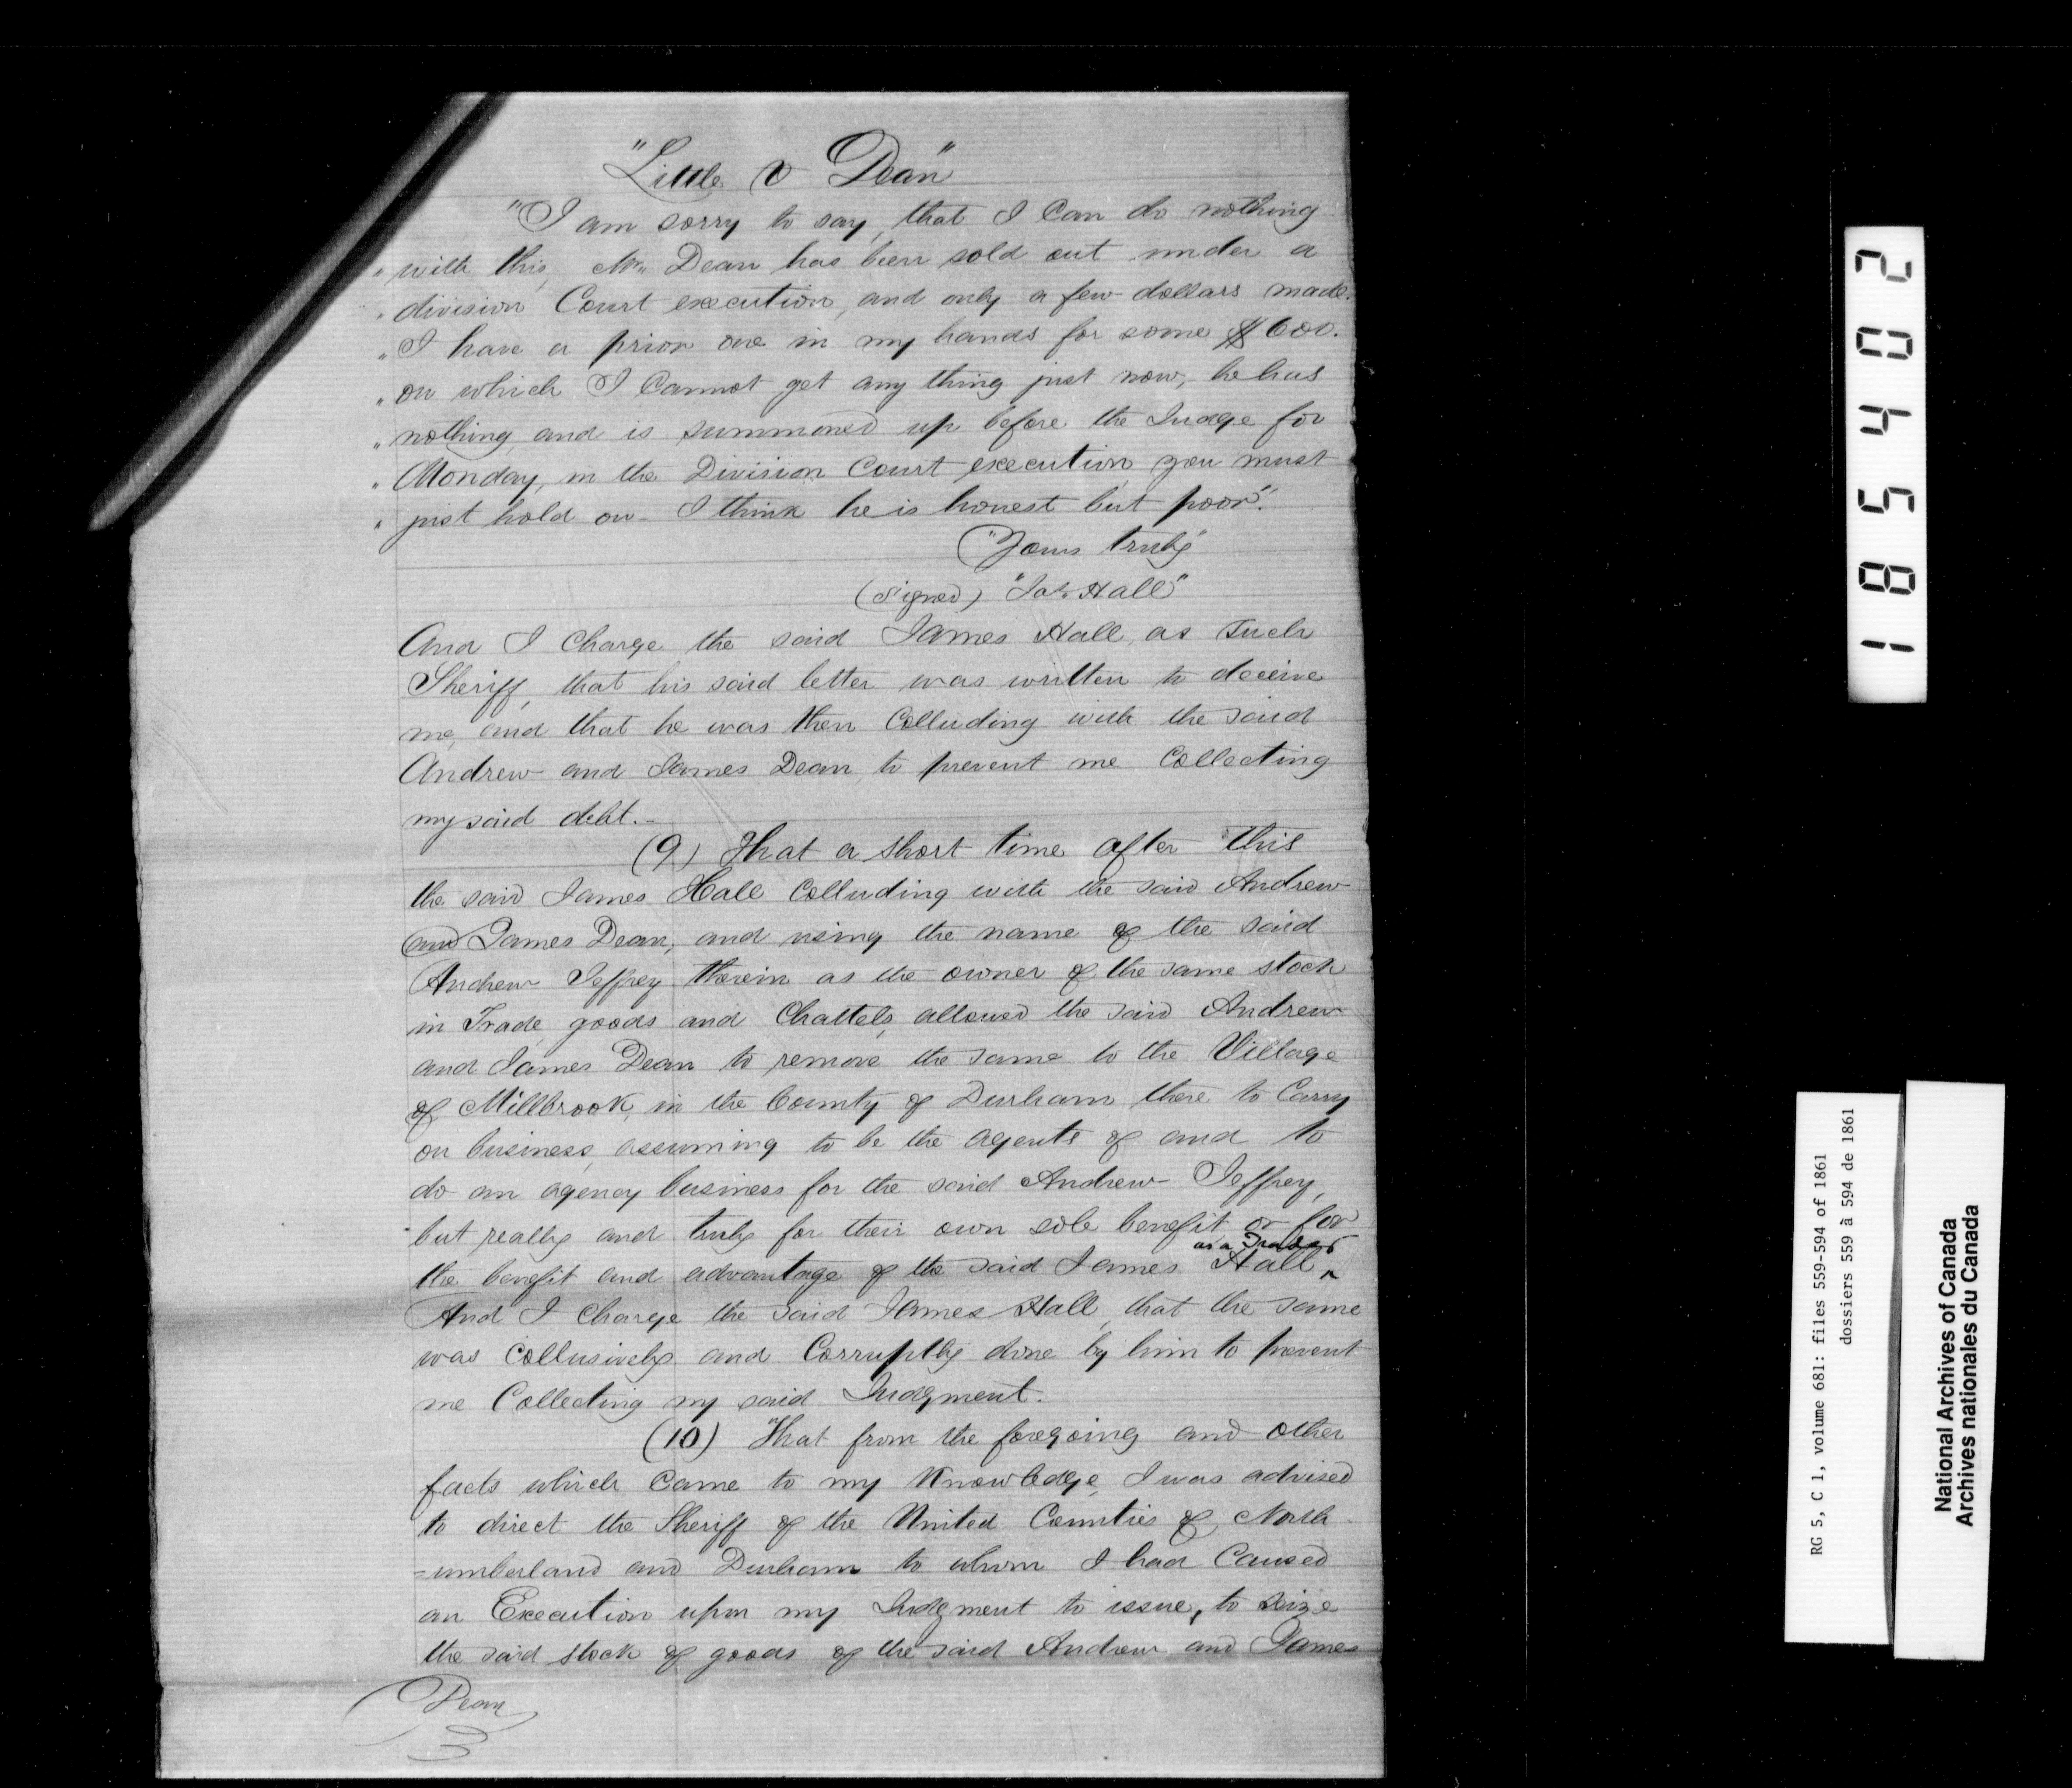 "Little v Dean"
"I am sorry to say, that I Can do nothing
" with this, Mr. Dean has been sold out under a
" division Court execution, and only a few dollars made.
" I have a prior one in my hands for some $600.
" on which I Cannot get any thing just now, he has
" nothing and is summoned up before the Judge for
" Monday, in the Division Court execution, you must
" just hold on - I think he is honest but poor."
"Yours truly"
(Signed) "Jas. Hall"
And I Charge the said James Hall, as such
Sheriff, that his said letter was written to deceive
me, and that he was then Colluding with the said
Andrew and James Dean, to prevent me Collecting
my said debt.-
(9) That a short time after this
the said James Hall Colluding with the said Andrew
and James Dean, and using the name of the said
Andrew Jeffrey therein as the owner of the same stock
in Trade, goods and Chattels, allowed the said Andrew
and James Dean to remove the same to the Village
of Millbrook, in the County of Durham there to Carry
on business, assuming to be the agents of and to
do an agency business for the said Andrew Jeffrey,
but really and truly for their own sole benefit or for
the benefit and advantage of the said James Hall ^ as a Trader
And I Charge the said James Hall, that the same
was Collusively and Corruptly done by him to prevent
me Collecting my said Judgment.
(10) That from the foregoing and other
facts which Came to my Knowledge, I was advised
to direct the Sheriff of the United Counties of North
=umberland and Durham to whom I had Caused
an Execution upon my Judgment to issue, to seize
the said stock of goods of the said Andrew and James
Dean
185402
RG 5, C 1, volume 681: files 559-594 of 1861
dossiers 559 à 594 de 1861
National Archives of Canada
Archives nationales du Canada